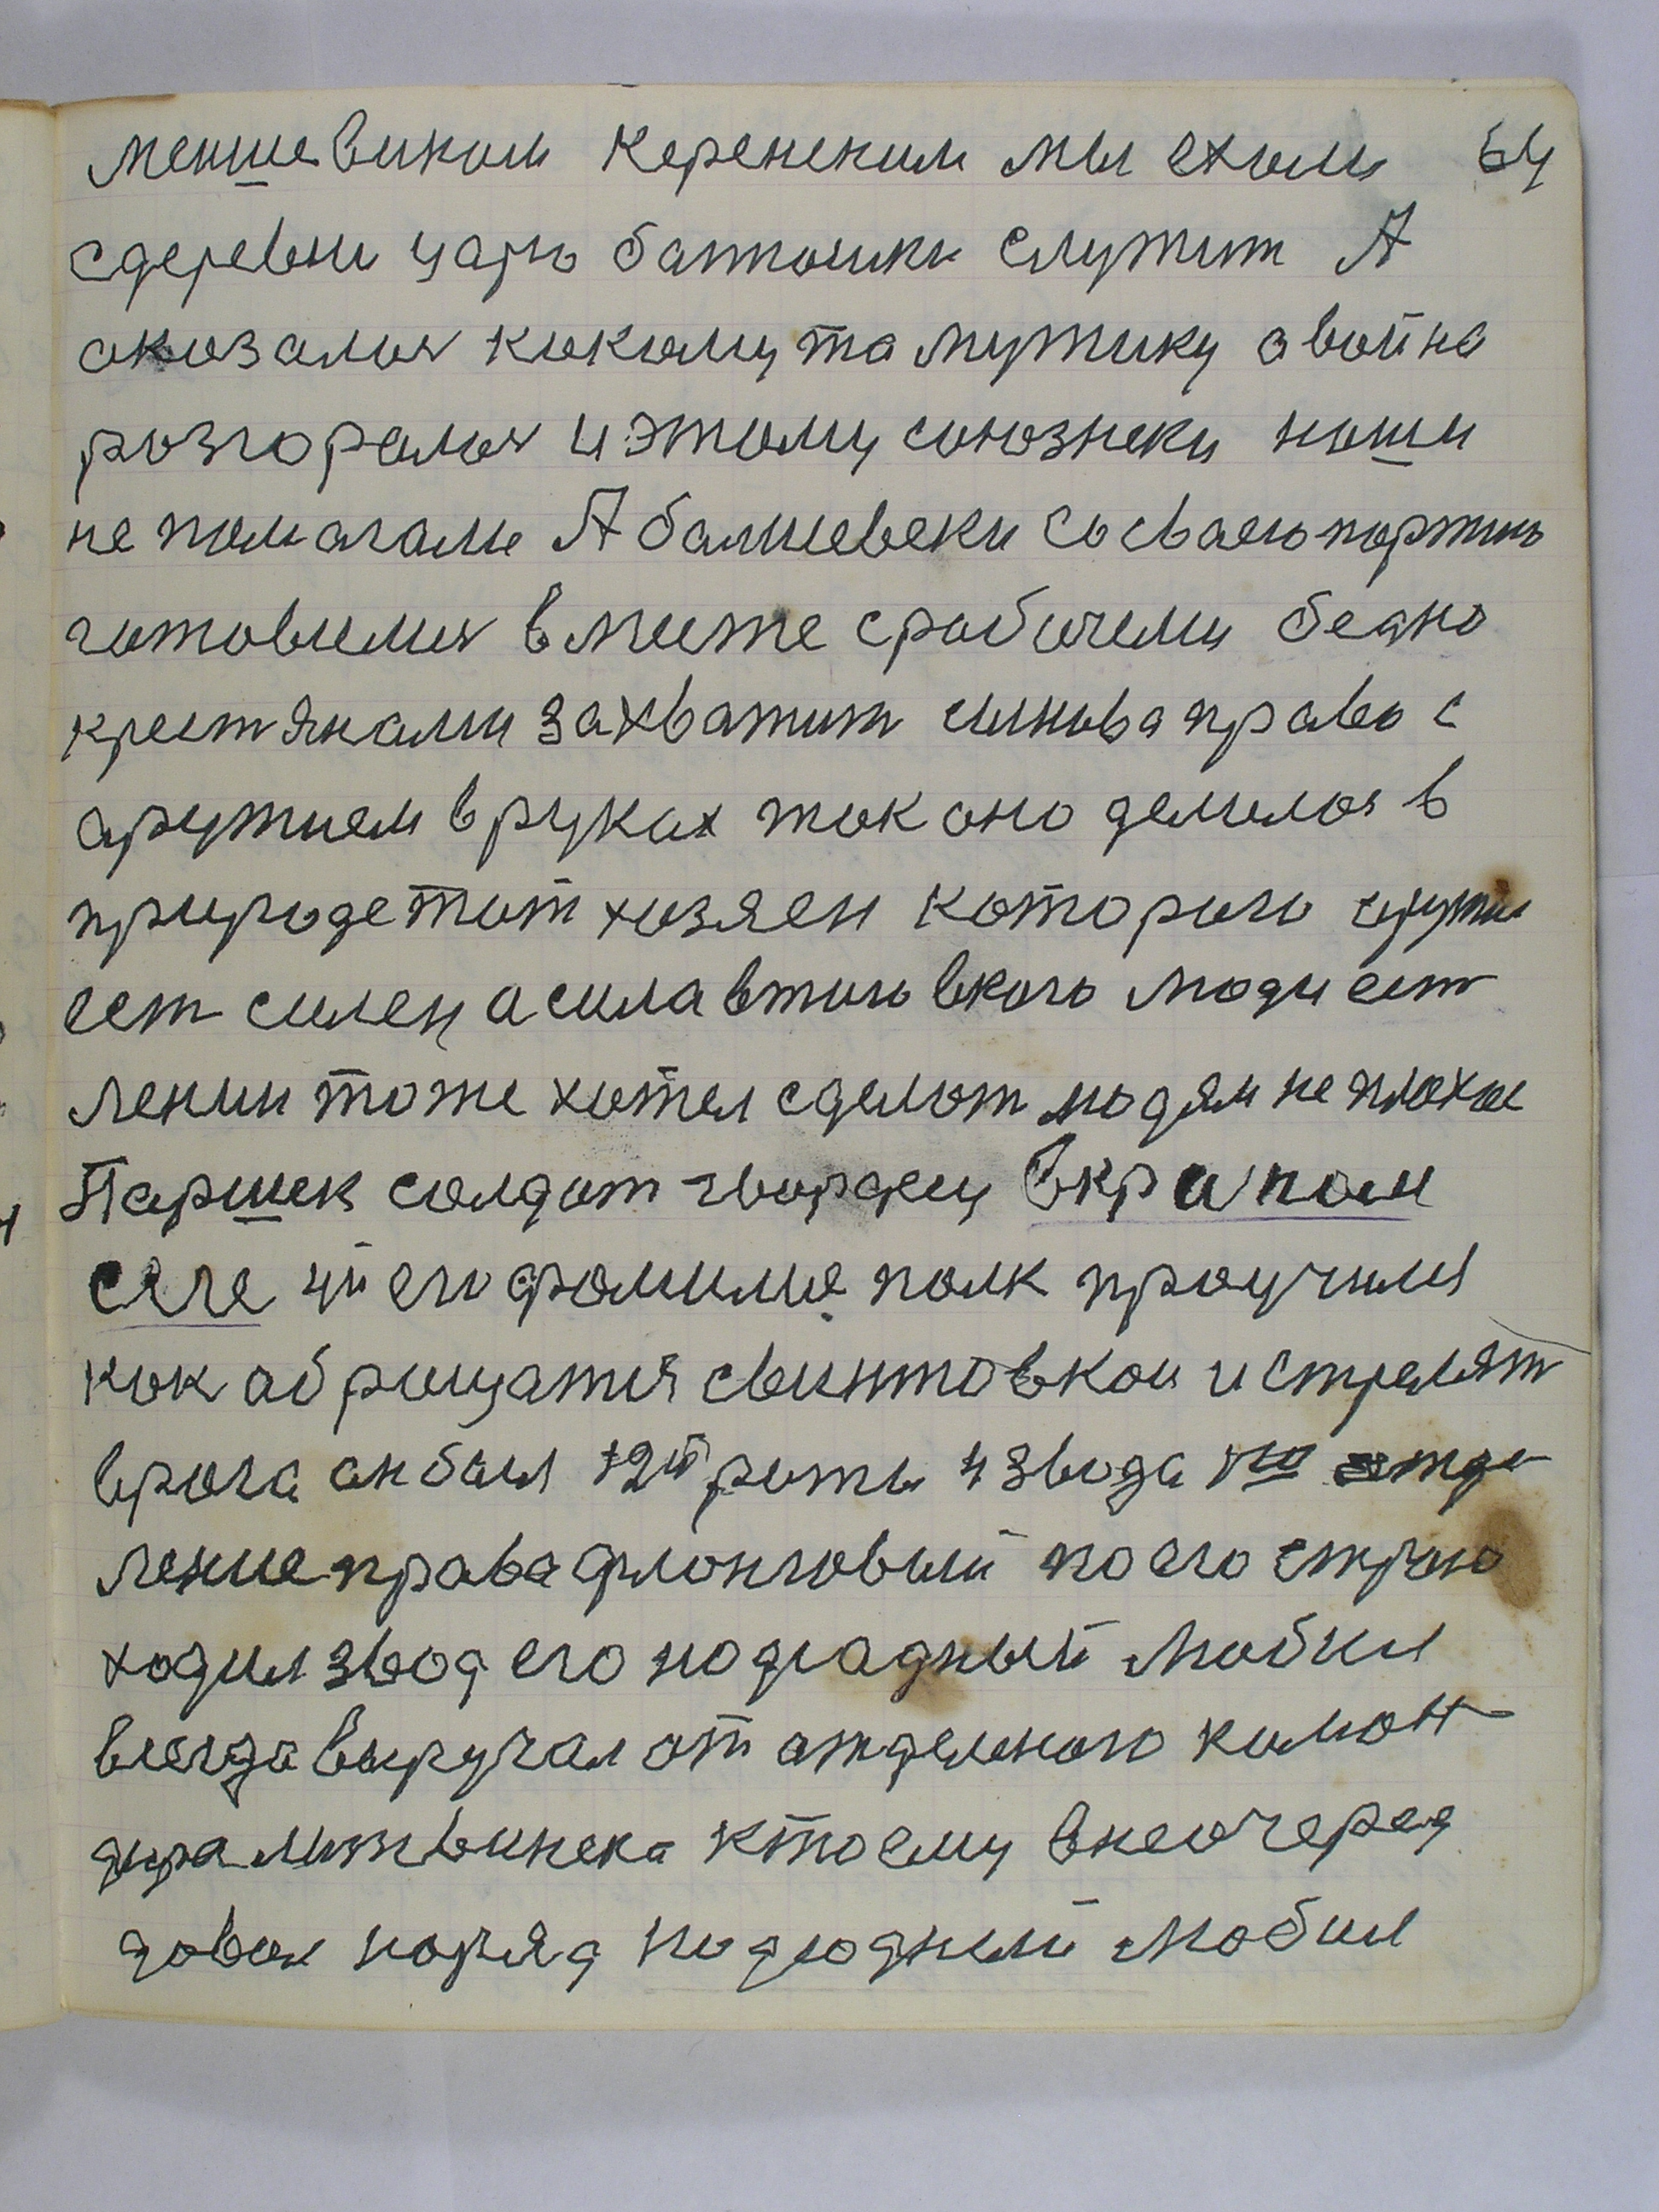 меншевиком Керенским мы ехали 64
сдеревни царю батюшки служит А
оказалса какомута мужику авойна
розгоралас иэтому союзнеки наши
не помагали А балшевеки сосваею партию
готовилис вместе срабочеми бедно
крестянами захватит синова право с
аружием вруках так оно делалос в
природе тот хозяен которого оружие
ест силен асила втого вкого люди ест
Ленин тоже хотел сделат людям не плохое
Паршек солдат гвардеец
его фамилие полк проучился
как абращатися свинтовкои истрелят
врага анбыл 12й роты 4 звода отде
ление права фланговый по его строю
ходил звод его подгадный любил
всегда выручал от атделеного коман
дира литвинека ктоему внеочеред
довал наряд любил